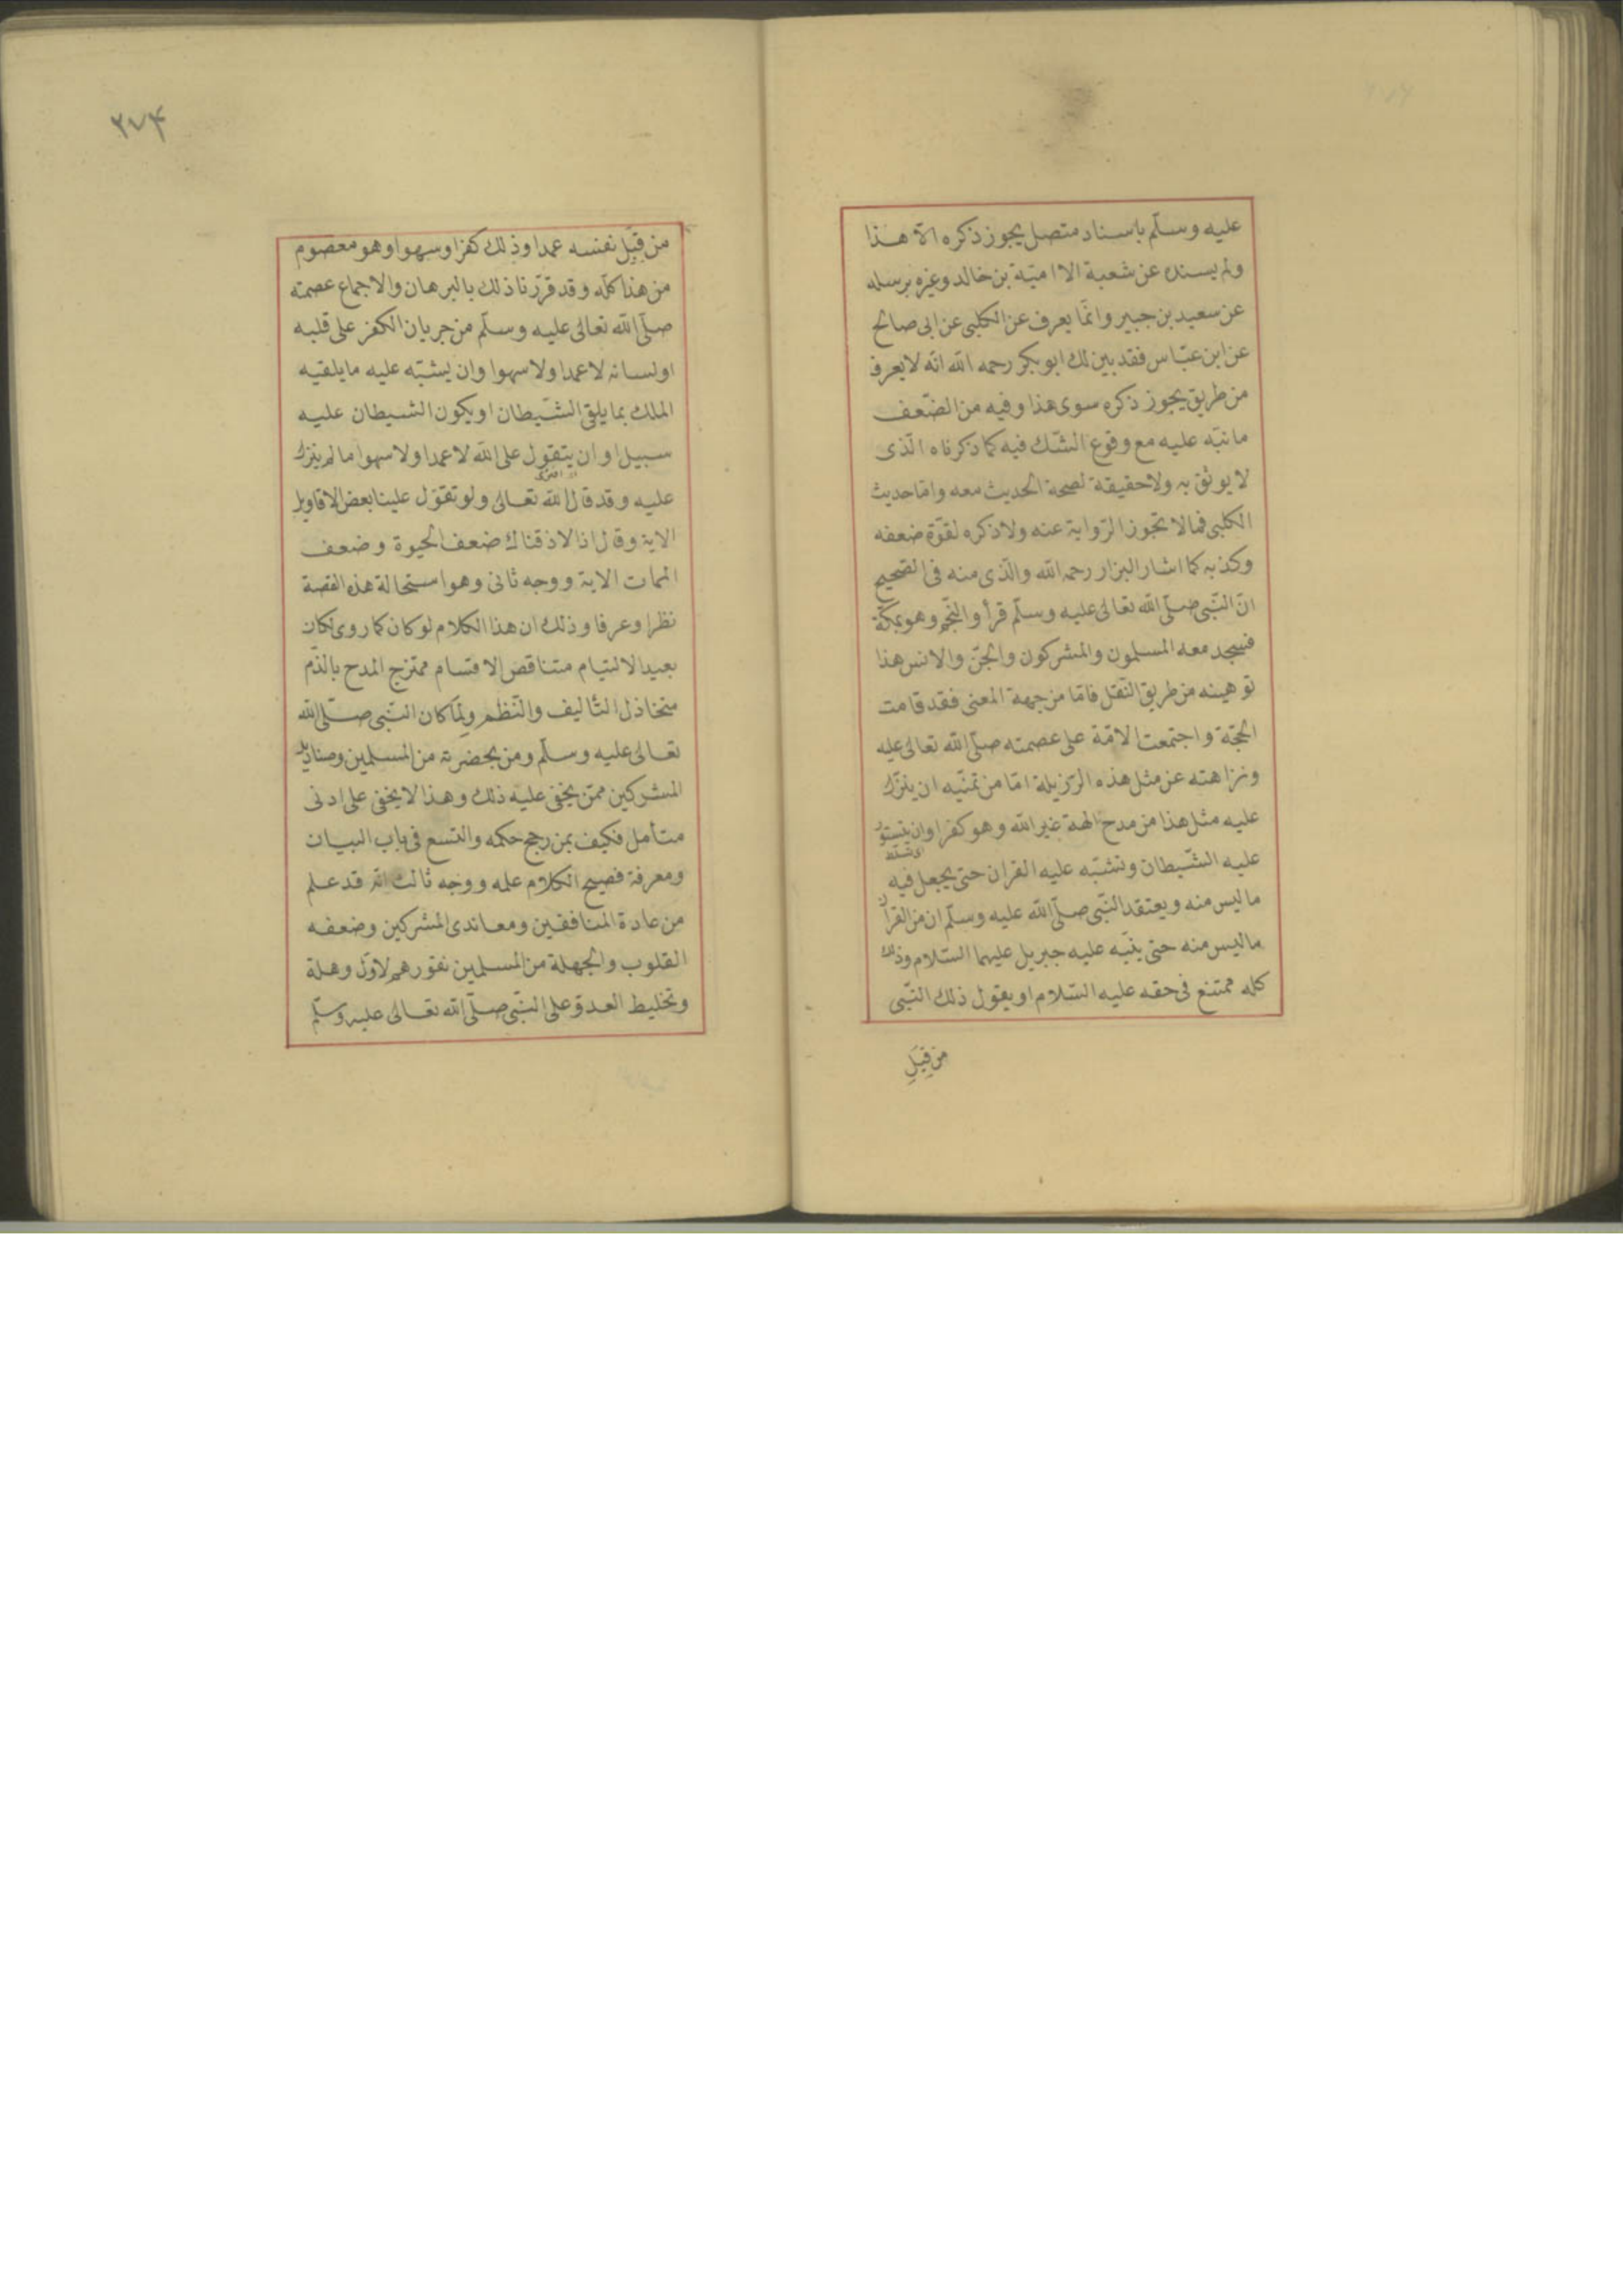 عليه وسلّم باسناد متصل يجوز ذكره الّا هذا
ولم يسنده عن شعبة الا اميّة بن خالد وغيره يرسله
عن سعيد بن جبير وانّما يعرف عن الكلبى عن ابى صالح
عن ابن عبّاس فقد بين لك ابو بكر رحمه الله انّه لا يعرف
من طريق يجوز ذكره سوى هذا وفيه من الضّعف
ما نبّه عليه مع وقوع الشّك فيه كما ذكرناه الّذى
لا يوثق به ولا حقيقة لصحة الحديث معه وامّا حديث
الكلبى فما لا تجوز الرّواية عنه ولا ذكره لقوّة ضعفه
وكذبه كما اشار البزار رحمه الله والّذى منه فى الصّحيح
انّ النّبى صلّى الله تعالى عليه وسلّم قرأ والنّجم وهو بمكّة
فسجد معه المسلمون والمشركون والجنّ والانس هذا
توهينه من طريق النّقل فامّا من جهة المعنى فقد قامت
الحجّة واجتمعت الامّة على عصمته صلّى الله تعالى عليه
ونزاهته عن مثل هذه الرّزيلة امّا من تمنّيه ان ينزّل
عليه مثل هذا من مدح الهة غير الله وهو كفر او ان يتسوّر
عليه الشّيطان وتشبّه عليه القران حتى يجعل فيه
ما ليس منه ويعتقد النّبى صلّى الله عليه وسلّم ان من القرأن
ما ليس منه حتى ينبّه عليه جبريل عليهما السّلام وذلك
كله ممتنع فى حقه عليه السّلام او يقول ذلك النّبى
من قِبَلِ
٢٧۴
من قِبَل نفسه عمدا وذلك كفر او سهوا وهو معصوم
من هذا كلّه وقد قرّرنا ذلك بالبرهان والاجماع عصمته
صلّى الله تعالى عليه وسلّم من جريان الكفر على قلبه
او لسانه لا عمدا ولا سهوا وان يشبّه عليه ما يلقيه
الملك بما يلقى الشّيطان او يكون الشيطان عليه
سبيل او ان يتقول على الله لا عمدا ولا سهوا ما لم ينزل
عليه وقد قال الله تعالى ولو تقوّل علينا بعض الاقاويل
الاية وقال اذا لاذقناك ضعف الحيوة وضعف
الممات الاية ووجه ثانى وهو استحالة هذه القصة
نظرا وعرفا وذلك ان هذا الكلام لو كان كما روى لكان
بعيد الالتيام متناقض الاقسام ممتزج المدح بالذّم
متخاذل التّاليف والنّظم ولِمَا كان النّبى صلّى الله
تعالى عليه وسلّم ومن بحضرته من المسلمين وصناديد
المشركين ممن يخفى عليه ذلك وهذا لا يخفى على ادنى
متأمل فكيف بمن رجح حكمه واتسع فى باب البيان
ومعرفة فصيح الكلام علمه ووجه ثالث انّه قد علم
من عادة المنافقين ومعاندى المشركين وضعفه
القلوب والجهلة من المسلمين نفورهم لاوّل وهلة
وتخليط العدوّ على النّبى صلّى الله تعالى عليه وسلّم